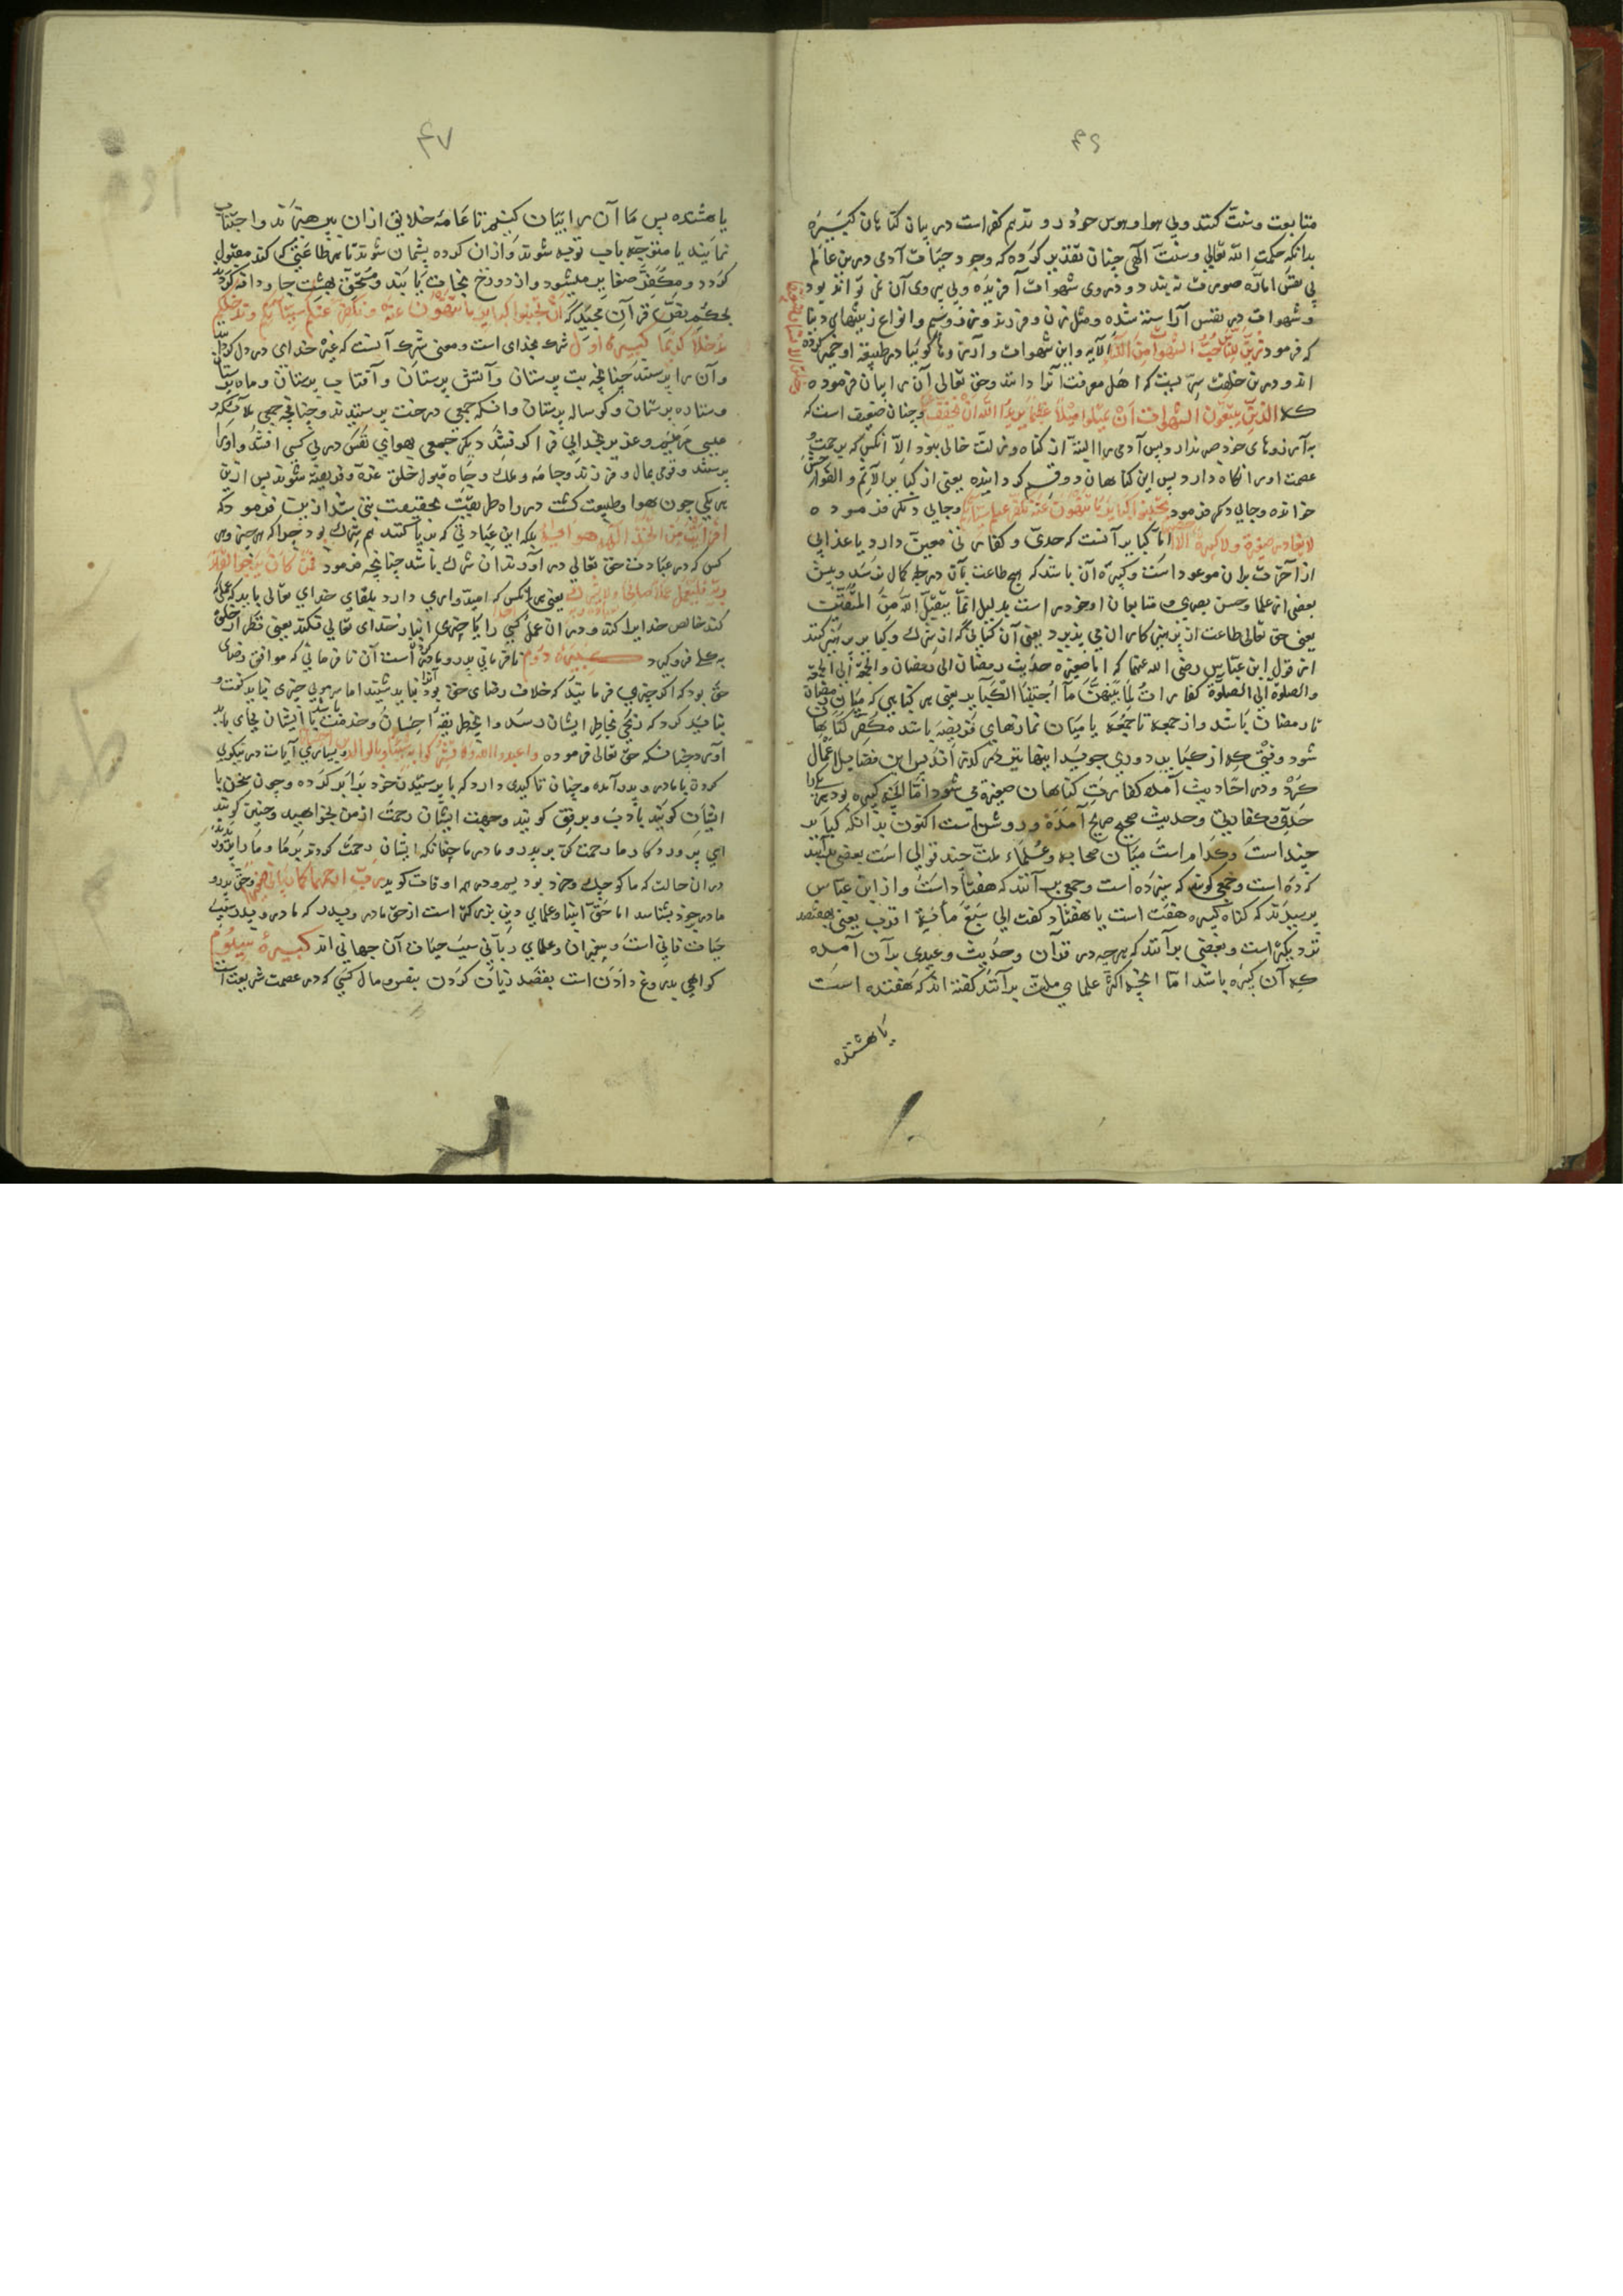 ۴۶
متابعت و سنت کنند و بی هوا و هوس خود روند هم کفر است در بیان کناهان کبیره
بدانکه حکمت الله تعالی و سنت آلهی چنان تقدیر کرده که وجود حیات آدمی درین عالم
بی نفس اماره صورت نه بندد و در وی شهوات آفریده و بی پیروی آن نمی تواند بود
و شهوات در نفس آراسته شده و مثل زن و فرزند و زر و سیم و انواع زینتهای دنیا
که فرمود زین للناس حب الشهوات من النساء الآیه و این شهوات و آرزوها کوئیا در طبیعة او خمیر کرده
اند و درین خلقت سریست که اهل معرفت آنرا دانند و حق تعالی آن را بیان فرموده
کلا الذین یتبعون الشهوات ان تمیلوا میلا عظیما یرید الله ان یخفف و چنان ضعیف است که
به آرزوهای خود صبر ندارد پس آدمی را البته از کناه و زلت خالی نبود الا آنکس که برحمت و
عصمت او را نکاه دارد پس این کناهان دو قسم کردانیده یعنی از کبایر الاثم و الفواحش
خوانده و جایی دکر فرمود تجتنبوا کبایر ما تنهون عنه نکفر عنکم سیاتکم و جایی دیکر فرموده
لا یغادر صغیرة و لا کبیرة الا اما کبایر آنست که حدی و کفارتی معین دارد یا عذابی
از آخرت بران موعود است و کبیره آن باشد که هیچ طاعت بآن درجه کمال نرسد و پیش
بعضی از علما و حسن بصری و متابعان او خود راست بدلیل انما یتقبل الله من المتقین
یعنی حق تعالی طاعت از پرهیزکاران می پذیرد یعنی آن کسانی که از شرک و کبایر پرهیز کنند
از قول ابن عباس رضی الله عنهما که اما صغیره حدیث رمضان الی رمضان و الجمعة الی الجمعة
و الصلوة الی الصلوة کفارات لما بینهن ما اجتنبا الکبایر یعنی هر کناهی که میان رمضان
تا رمضان باشد و از جمعه تا جمعه یا میان نمازهای فریضه باشد مکفر کناهها
شود وقتی که از کبایر دوری جوید اینها نیز ذکر کرده اند پس این فضایل اعمال
کرد و در احادیث آمده کفارت کناهان صغیره می شود اما آنچه کبیره بود هر یکی را
حدی و کفارتی و حدیث صحیح صریح آمده و روشن است اکنون بدانکه کبایر
چند است و کدام است میان صحابه و علماء ملت چند قوالی است بعضی برآنند
که ده است و جمعی کوند که سیزده است و جمعی بر آنند که هفتاد است و از ابن عباس
پرسیدند که کناه کبیره هفت است یا هفتاد کفت الی سبع مأیة اقرب یعنی بهفتصد
نزدیکتر است و بعضی برآنند که هرچه در قرآن و حدیث وعیدی بدآن آمده
که آن کبیره باشد اما آنچه اکثر علمای ملت برآنند کفته اند که هفتده است
یا هشتده
۴۷
یا هشتده پس ما آن را بیان کنیم تا عامه خلایق ازان پرهیزند و اجتناب
نمایند یا متوجه باب توبه شوند و ازان کرده پشمان شوند تا هر طاعتی که کنند مقبول
کردد و مکفر صغایر میشود و از دوزخ نجات یابند و مستحق بهشت جاودانه کردد
بحکم نص قرآن مجید که ان تجتنبوا کبایر ما تنهون عنه و نکفر عنکم سیاتکم و ندخلکم
مدخلا کریما کبیره اول شرک بخدای است و معنی شرک آنست که غیر خدای در دل
و آن را پرستد چنانچه بت پرستان و آتش پرستان و آفتاب پرستان و ماه پرستان
و ستاره پرستان و کوساله پرستان و آنکه جمعی درخت پرستیدند و چنانچه جمعی ملائکه و
عیسی مریم و عزیر بخدایی فرا کرفتند دیکر جمعی بهوای نفس در پی کسی افتد و او را
پرستند و قومی بمال و فرزند و جامه و ملک و جاه قبول خلق غره و فریفته شوند پس ازین
هر یکی چون بهوا و طبیعت کشت در راه طریقت بحقیقت بتی شد ازینت فرمود که
افرایت من اتخذ الهه هواه بلکه این عبادتی که بریا کنند هم شرک بود چرا که هر چیز و هر
کس که در عبادت حق تعالی درآورند آن شرک باشد چنانچه فرمود فمن کان یرجوا لقاء
ربه فلیعمل عملا صالحا و لا یشرک یعنی هر آنکس که امیدواری دارد بلقای خدای تعالی باید که عمل
کند خالص خدایرا کند و در ان عمل کسی را یا چیزی انباز خدای تعالی نکند یعنی نظر از خلق
به کلی فروکیرد کبیره دوم نافرمانی پدر و مادر است آن نافرمانی که موافق رضای
حق بود که اکر چیزی فرمایند که خلاف رضای حق بود نباید شنید اما هر مویی چیزی نباید کفت و
نباید کرد که رنجی بخاطر ایشان رسد و این بطریقه احسان و خدمت با ایشان بجای باید
آورد چنانکه حق تعالی فرموده واعبدوا الله ولا تشرکوا به شیئا وبالوالدین احسانا و بسیاری آیات در نیکوی
کردن با مادر و پدر آمده و چنان تاکیدی دارد که با پرستیدن خود برابر کرده و چون سخن با
ایشان کویند بادب و برفق کویند و جهت ایشان رحمت از من بخواهید و چنین کویند
ای پروردکار ما رحمت کن بر پدر و مادر ما چنانکه ایشان رحمت کردند بر ما و ما را پروردند
دران حالت که ما کوچک و خرد بودیم و در همه اوقات کوید رب ارحمهما کما ربیانی صغیرا و حق پدر و
مادر خود بشناسد اما حق انبیا و علمای دین بزرکتر است از حق مادر و پدر که مادر و پدر سبب
حیات فانی است و پیغمبران و علمای ربانی سبب حیات آن جهانی اند کبیره سیوم
کواهی بدروغ دادن است بقصد زیان کردن بنفس و مال کسی که در عصمت شریعت است